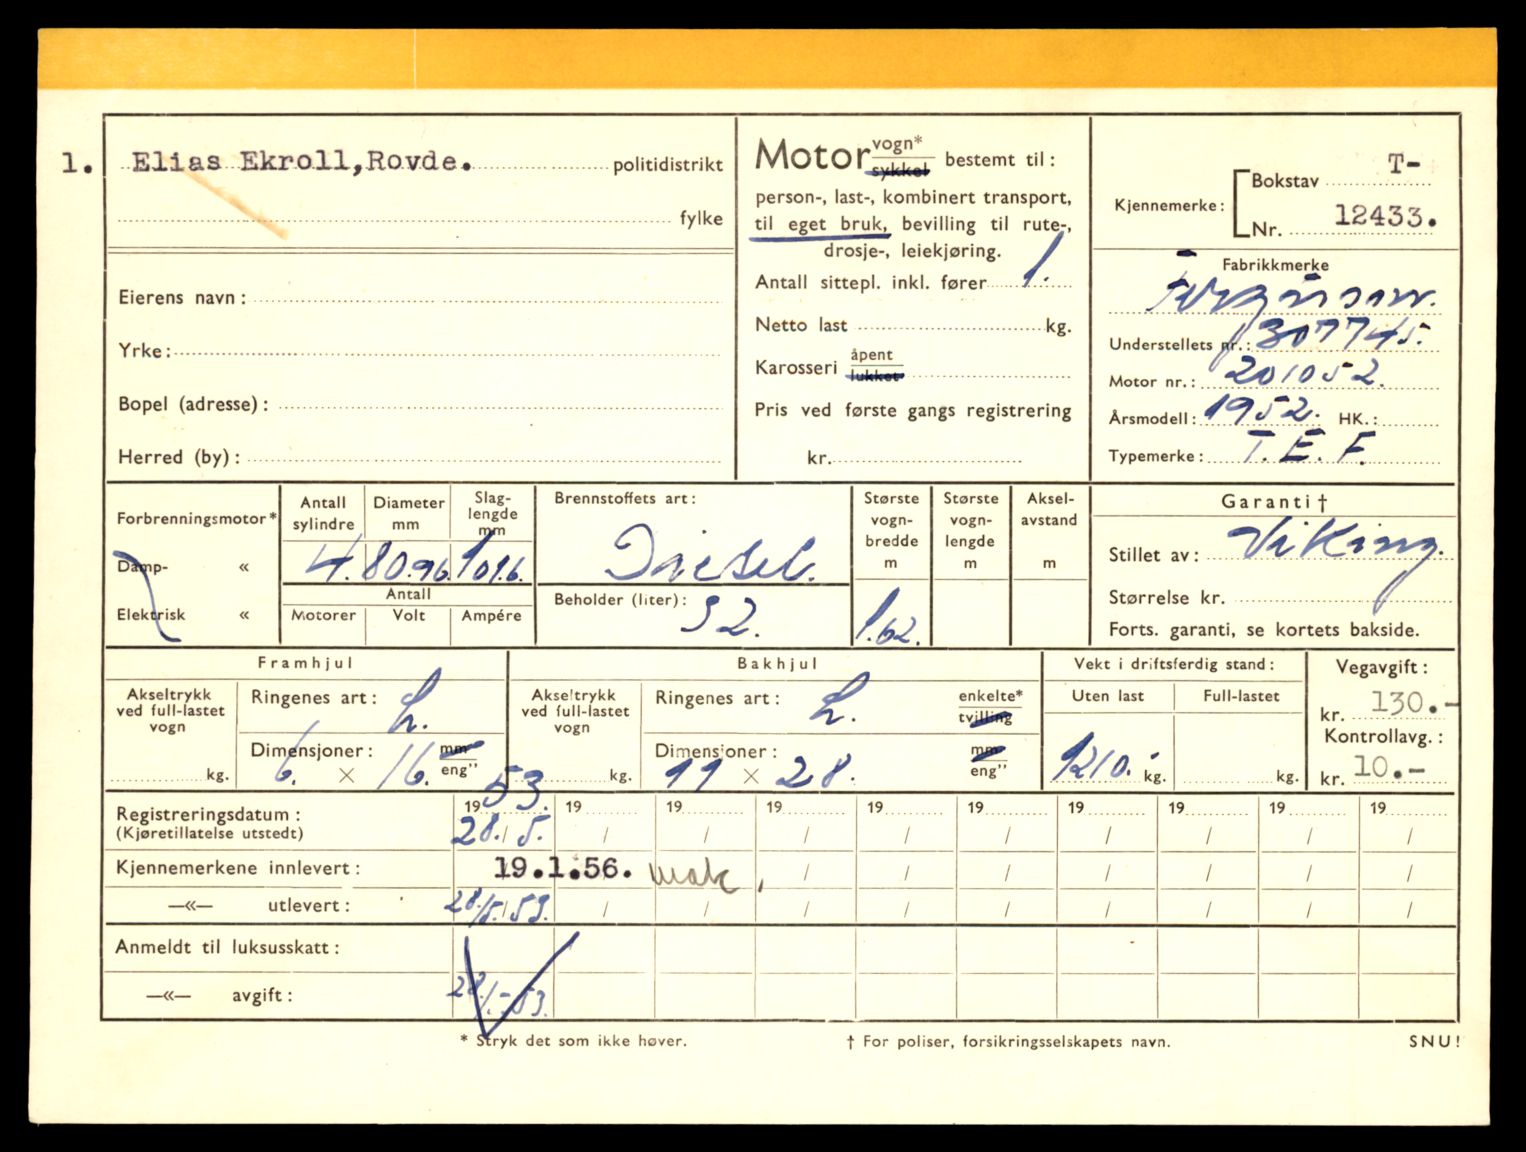 1. Elias Ekroll, Rovde. politidistrikt
fylke
Eierens navn:
Yrke:
Bopel (adresse):
Herred (by):
Motor vogn* sykkel bestemt til:
person-, last-, kombinert transport,
til eget bruk, bevilling til rute-,
drosje-, leiekjøring.
Antall sittepl. inkl. fører 1.
Netto last kg.
Karosseri åpent lukket
Pris ved første gangs registrering
kr.
Kjennemerke: Bokstav T-
Nr. 12433.
Fabrikkmerke
Fergüson.
Understellets nr.: 307745.
Motor nr.: 201052.
Årsmodell: 1952. HK.:
Typemerke: T. E. F.
Forbrenningsmotor*
Damp- «
Elektrisk «
Antall sylindre 4.
Diameter mm 80.96.
Slaglengde mm 101.6.
Antall
Motorer Volt Ampére
Brennstoffets art:
Diesel.
Beholder (liter): 32.
Største vogn-bredde m 1.62.
Største vogn-lengde m
Aksel-avstand m
Garanti †
Stillet av: Viking.
Størrelse kr.
Forts. garanti, se kortets bakside.
Framhjul
Akseltrykk ved full-lastet vogn kg.
Ringenes art: L.
Dimensjoner: 6. × 16. mm eng”
Bakhjul
Akseltrykk ved full-lastet vogn kg.
Ringenes art: L. enkelte* tvilling
Dimensjoner: 11 × 28. mm eng”
Vekt i driftsferdig stand:
Uten last Full-lastet
1210.- kg. kg.
Vegavgift:
kr. 130.-
Kontrollavg.:
kr. 10.-
Registreringsdatum: 1953. 19 19 19 19 19 19 19 19 19
(Kjøretillatelse utstedt) 28./5. / / / / / / / / /
Kjennemerkene innlevert: 19.1.56. mak. / / / / / / /
—«— utlevert: 28./5./53. / / / / / / / / /
Anmeldt til luksusskatt:
—«— avgift: 28./.-53.
* Stryk det som ikke høver.
† For poliser, forsikringsselskapets navn.
SNU!